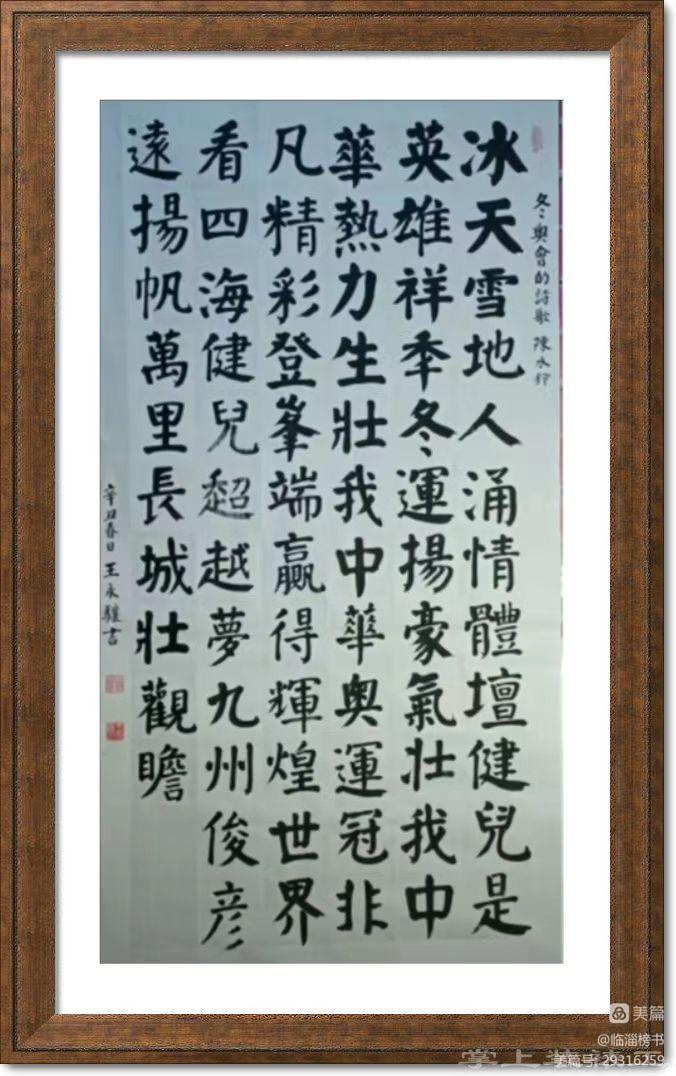 冬々奥會的詩歌 陳永行
冰天雪地人涌情體壇健兒是
英雄祥季冬々運揚豪氣壯我中
華熱力生壯我中華奥運冠非
凡精彩登峯端贏得輝煌世界
看四海健兒超越夢九州俊彦
遠揚帆萬里長城壯觀瞻
辛丑春日 王永
書
美篇
@临淄榜书
掌上
美篇号:29316259